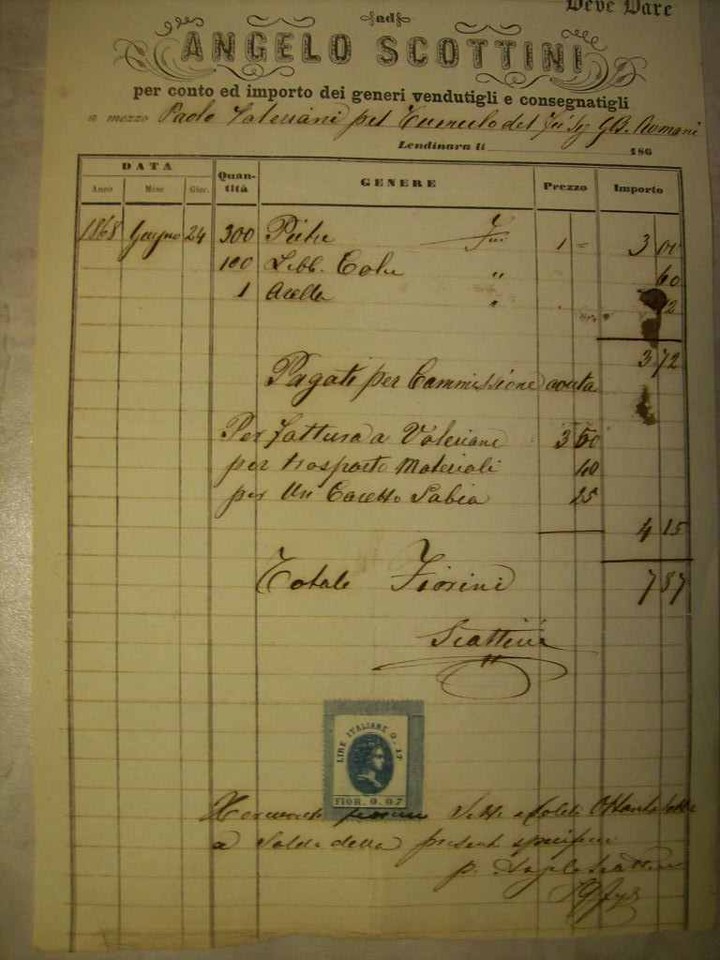 Deve Dare
ad
ANGELO SCOTTINI
per conto ed importo dei generi vendutigli e consegnatigli
a mezzo Paolo Valeriani pel Tumulo del
Lendinara li 186
DATA Quantità GENERE Prezzo Importo
Anno Mese Gior.
1868 Giugno 24 300 Pietre 1 = 3 00
100 Libb. " 60
1 "
3 72
Pagati per Commissione avuta
Per fattura a Valeriani 3 50
per trasporto Materiali 40
per Un Sabia 25
4 15
Totale Fiorini 7 87
Scottini
LIRE ITALIANE 0.17
FIOR. 0.07
Sette e soldi Ottantasette
a Saldo della presente specifica
p. Angelo Scottini